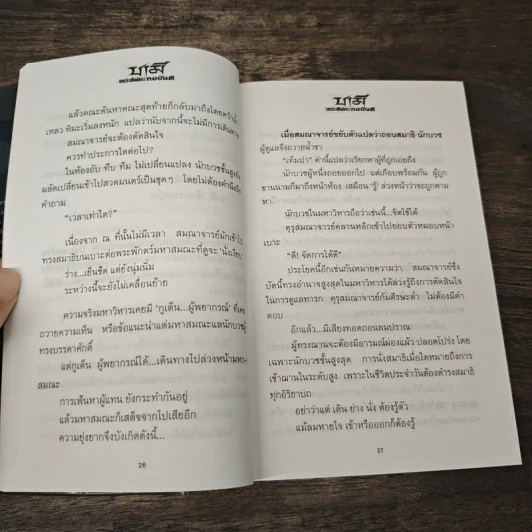 นามี
แล้วคณะค้นหาคณะสุดท้ายก็กลับมาถึงโดยคว้าน้ำ
เหลว หิมะเริ่มลงหนัก แปลว่านับจากนี้จะไม่มีการเดินทาง
สมณาจารย์จะต้องตัดสินใจ
ควรทำประการใดต่อไป?
ในห้องอับ ทึบ ทึม ไม่เปลี่ยนแปลง นักบวชชั้นสูง
ผลัดเปลี่ยนเข้าไปสวดมนตร์เป็นชุดๆ โดยไม่ต้องคำนึงถึง
คำถาม
“เวลาเท่าใด?”
เนื่องจาก ณ ที่นั้นไม่มีเวลา สมณาจารย์มักเข้าไป
ทรงสมาธิบนเบาะต่อพระพักตร์มหาสมณะที่ดูจะ ‘นั่งเรียบ’
ร่าง...เย็นชืด แต่ยังนุ่มนิ่ม
ระหว่างนี้จะยังไม่เคลื่อนย้าย
ความจริงมหาวิหารเคยมี ‘กูเต็น...ผู้พยากรณ์’ ที่เคย
ถวายความเห็น หรือข้อแนะนำแด่มหาสมณะแลนักบวชผู้
ทรงบรรดาศักดิ์
แต่กูเต็น ผู้พยากรณ์ได้...เดินทางไปล่วงหน้ามหา-
สมณะ
การเฟ้นหาผู้แทน ยังกระทำกันอยู่
แล้วมหาสมณะก็เสด็จจากไปเสียอีก
ความยุ่งยากจึงบังเกิดดังนี้...
26
นามี
เมื่อสมณาจารย์ขยับตัวแปลว่าถอนสมาธิ นักบวช
ผู้ดูแลจึงถวายน้ำชา
“เทิมปา” คำนี้แปลว่าเรียกหาผู้ที่ถูกเอ่ยถึง
นักบวชผู้หนึ่งถอยออกไป แต่เกือบพร้อมกัน ผู้ถูก
ขานนามก็มาถึงหน้าห้อง เสมือน ‘รู้’ ล่วงหน้าว่าจะถูกตาม
หา
นักบวชในมหาวิหารถือว่าเช่นนี้...จิตใช้ได้
คุรุสมณาจารย์คลานหลีกเข้าไปยอบตัวหมอบหน้า
เบาะ
“ดี! จัดการได้ดี”
ประโยคนี้อีกเช่นกันหมายความว่า สมณาจารย์ซึ่ง
บัดนี้ทรงอำนาจสูงสุดในมหาวิหารได้ล่วงรู้ถึงการตัดสินใจ
ในการดูแลทารก คุรุสมณาจารย์ก้มศีรษะต่ำ ไม่ต้องมีคำ
ตอบ
อีกแล้ว...มีเสียงทอดถอนลมปราณ
ผู้ทรงฌานจะต้องมีอารมณ์ผ่องแผ้ว ปลอดโปร่ง โดย
เฉพาะนักบวชชั้นสูงสุด การนั่งสมาธิเมื่อใดหมายถึงการ
เข้าฌานในระดับสูง เพราะในชีวิตประจำวันต้องดำรงสมาธิ
ทุกอิริยาบถ
อย่าว่าแต่ เดิน ย่าง นั่ง ต้องรู้ตัว
แม้ลมหายใจ เข้าหรือออกก็ต้องรู้
27